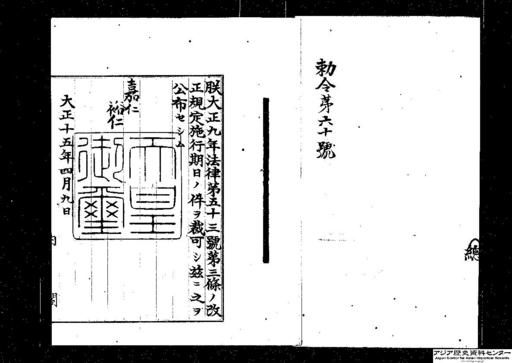 勅令第六十號
朕大正九年法律第五十三號第三條ノ改
正規定施行期日ノ件ヲ裁可シ玆ニ之ヲ
公布セシム
嘉仁
裕仁
天皇御璽
大正十五年四月九日
内
閣
總
アジア歴史資料センター
Japan Center for Asian Historical Records